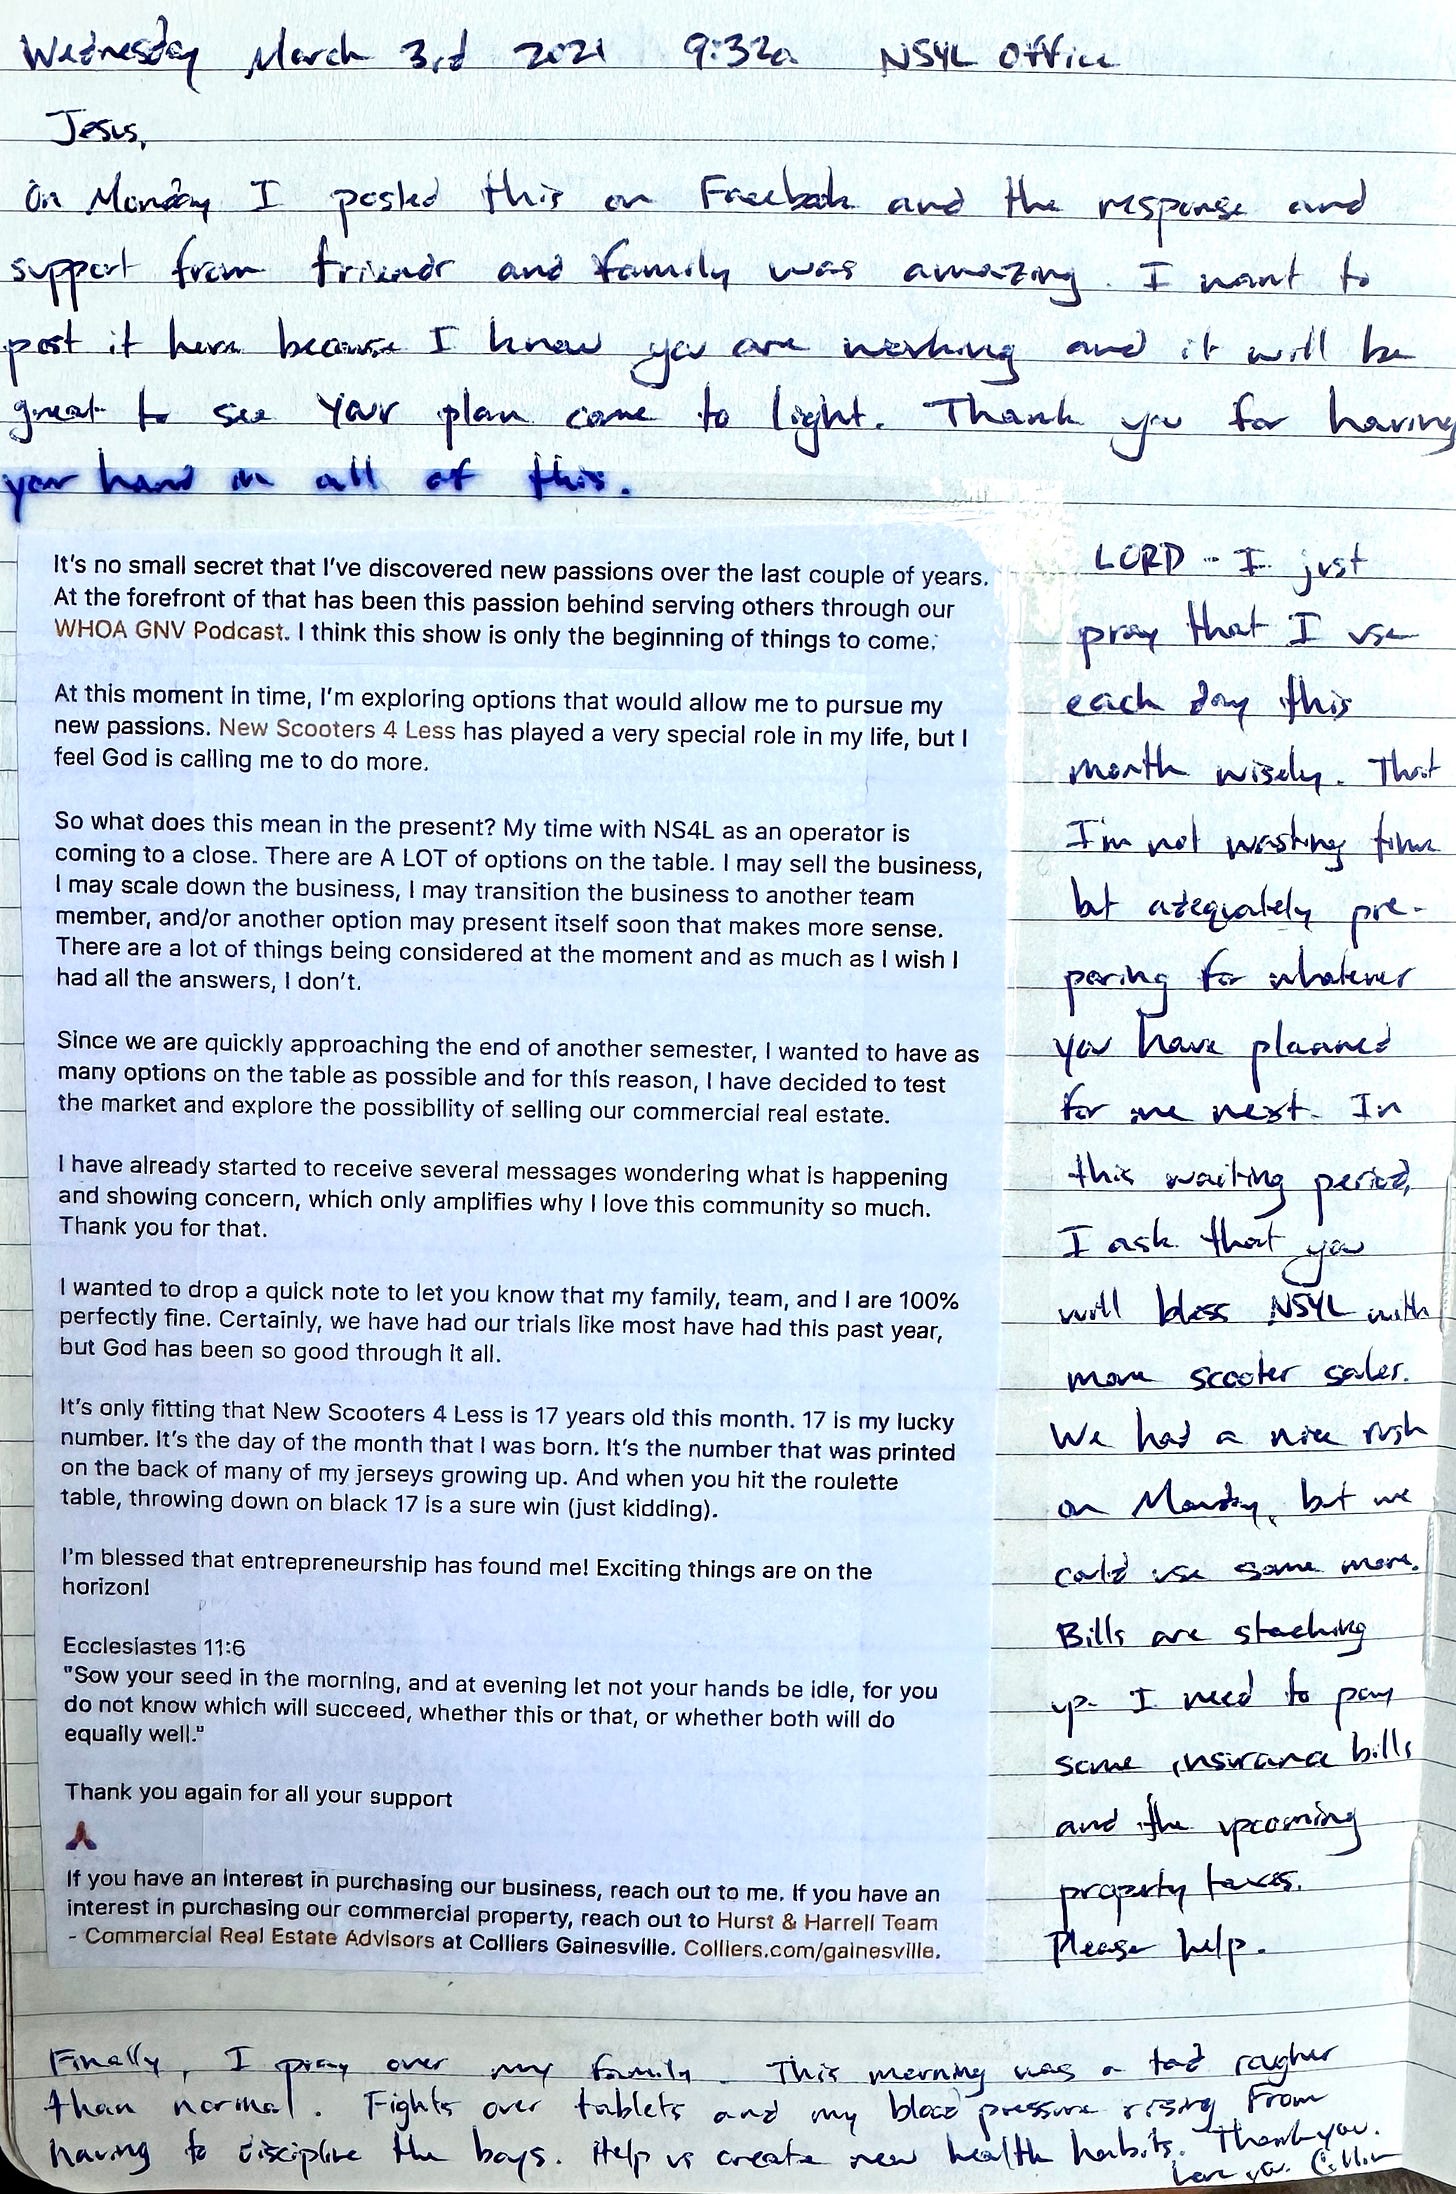 Wednesday March 3rd 2021 9:32a NS4L Office
Jesus,
On Monday I posted this on Facebook and the response and
support from friends and family was amazing. I want to
post it here because I know you are working and it will be
great to see your plan come to light. Thank you for having
your hand in all of this.
It's no small secret that I've discovered new passions over the last couple of years.
At the forefront of that has been this passion behind serving others through our
WHOA GNV Podcast. I think this show is only the beginning of things to come.
At this moment in time, I'm exploring options that would allow me to pursue my
new passions. New Scooters 4 Less has played a very special role in my life, but I
feel God is calling me to do more.
So what does this mean in the present? My time with NS4L as an operator is
coming to a close. There are A LOT of options on the table. I may sell the business,
I may scale down the business, I may transition the business to another team
member, and/or another option may present itself soon that makes more sense.
There are a lot of things being considered at the moment and as much as I wish I
had all the answers, I don't.
Since we are quickly approaching the end of another semester, I wanted to have as
many options on the table as possible and for this reason, I have decided to test
the market and explore the possibility of selling our commercial real estate.
I have already started to receive several messages wondering what is happening
and showing concern, which only amplifies why I love this community so much.
Thank you for that.
I wanted to drop a quick note to let you know that my family, team, and I are 100%
perfectly fine. Certainly, we have had our trials like most have had this past year,
but God has been so good through it all.
It's only fitting that New Scooters 4 Less is 17 years old this month. 17 is my lucky
number. It's the day of the month that I was born. It's the number that was printed
on the back of many of my jerseys growing up. And when you hit the roulette
table, throwing down on black 17 is a sure win (just kidding).
I'm blessed that entrepreneurship has found me! Exciting things are on the
horizon!
Ecclesiastes 11:6
"Sow your seed in the morning, and at evening let not your hands be idle, for you
do not know which will succeed, whether this or that, or whether both will do
equally well."
Thank you again for all your support
🙏
If you have an interest in purchasing our business, reach out to me. If you have an
interest in purchasing our commercial property, reach out to Hurst & Harrell Team
- Commercial Real Estate Advisors at Colliers Gainesville. Colliers.com/gainesville.
LORD - I just
pray that I use
each day this
month wisely. That
I'm not wasting time
but adequately pre-
paring for whatever
you have planned
for me next. In
this waiting period,
I ask that you
will bless NS4L with
more scooter sales.
We had a nice rush
on Monday, but we
could use some more.
Bills are stacking
up. I need to pay
some insurance bills
and the upcoming
property taxes.
Please help.
Finally, I pray over my family. This morning was a tad rougher
than normal. Fights over tablets and my blood pressure rising from
having to discipline the boys. Help us create new health habits. Thank you.
Love you. Collin